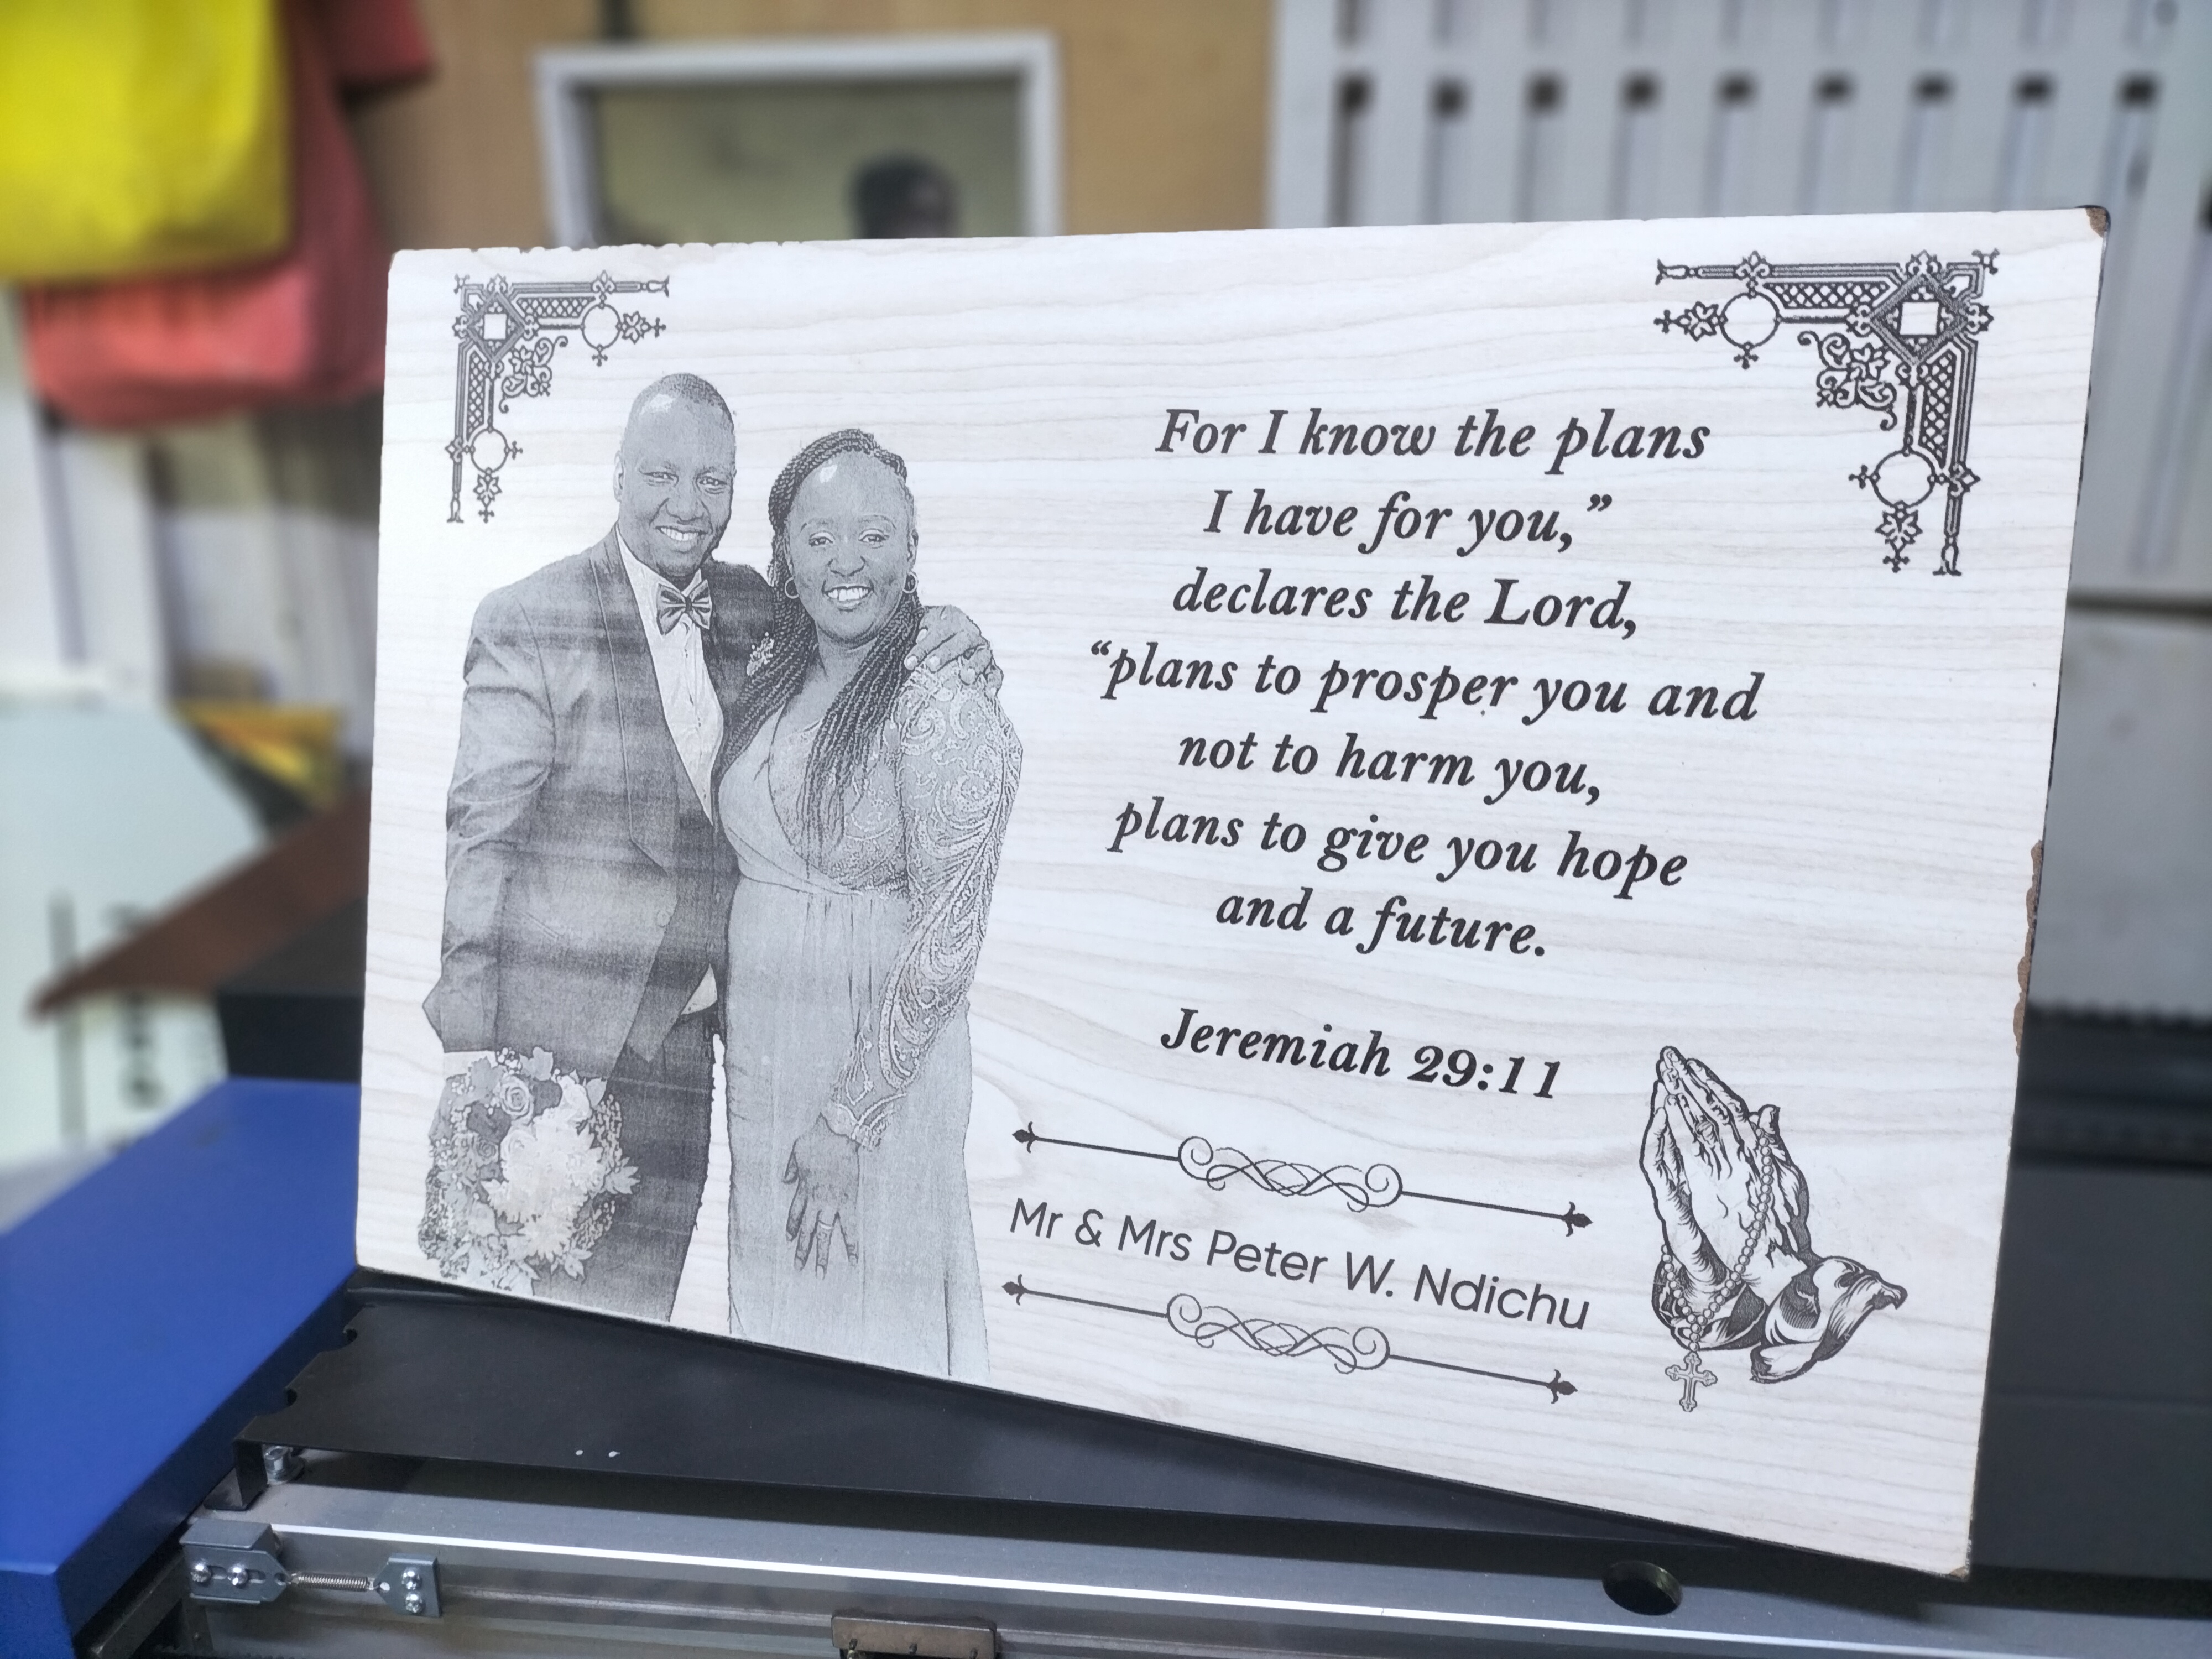 For I know the plans
I have for you,”
declares the Lord,
“plans to prosper you and
not to harm you,
plans to give you hope
and a future.
Jeremiah 29:11
Mr & Mrs Peter W. Ndichu